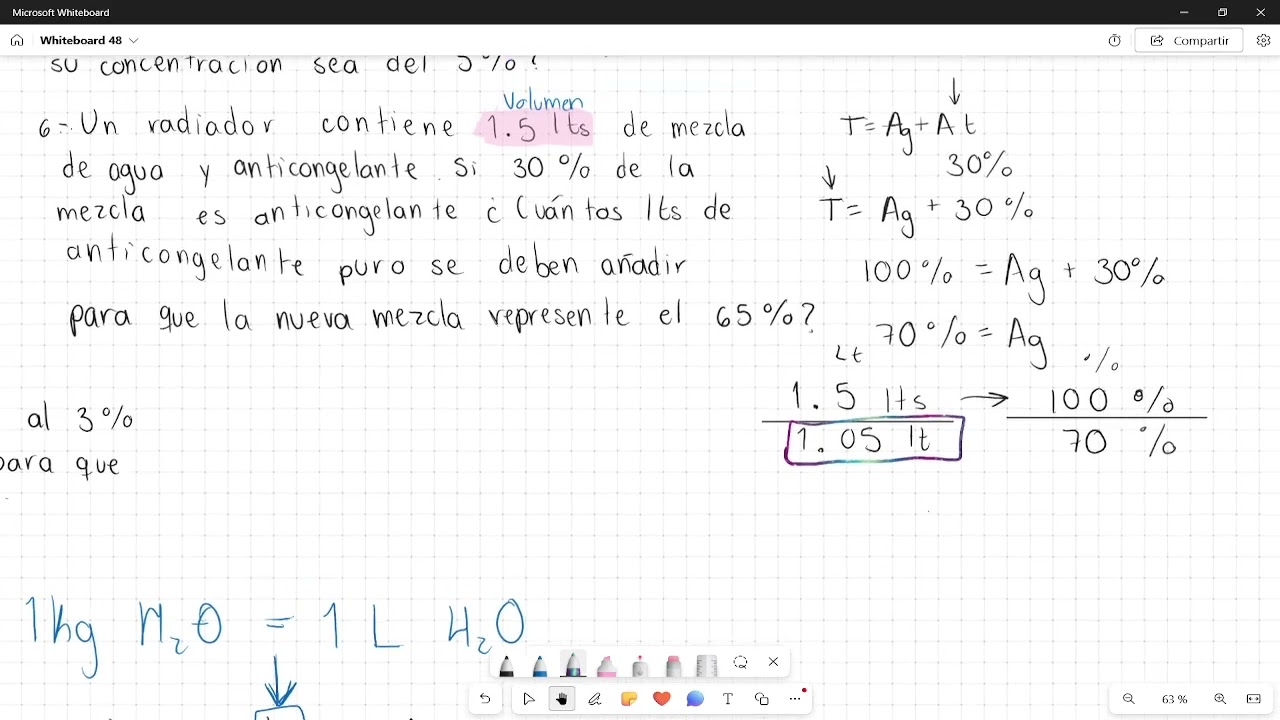 Microsoft Whiteboard
Whiteboard 48
Compartir
su concentracion sea del 5%?
Volumen
6.- Un radiador contiene 1.5 lts de mezcla
de agua y anticongelante. Si 30% de la
mezcla es anticongelante ¿Cuántos lts de
anticongelante puro se deben añadir
para que la nueva mezcla represente el 65%?
al 3%
para que
T= Ag + At
30%
T= Ag + 30%
100% = Ag + 30%
70% = Ag
Lt %
1.5 lts → 100 %
1.05 lt 70 %
1kg H₂O = 1 L H₂O
63%